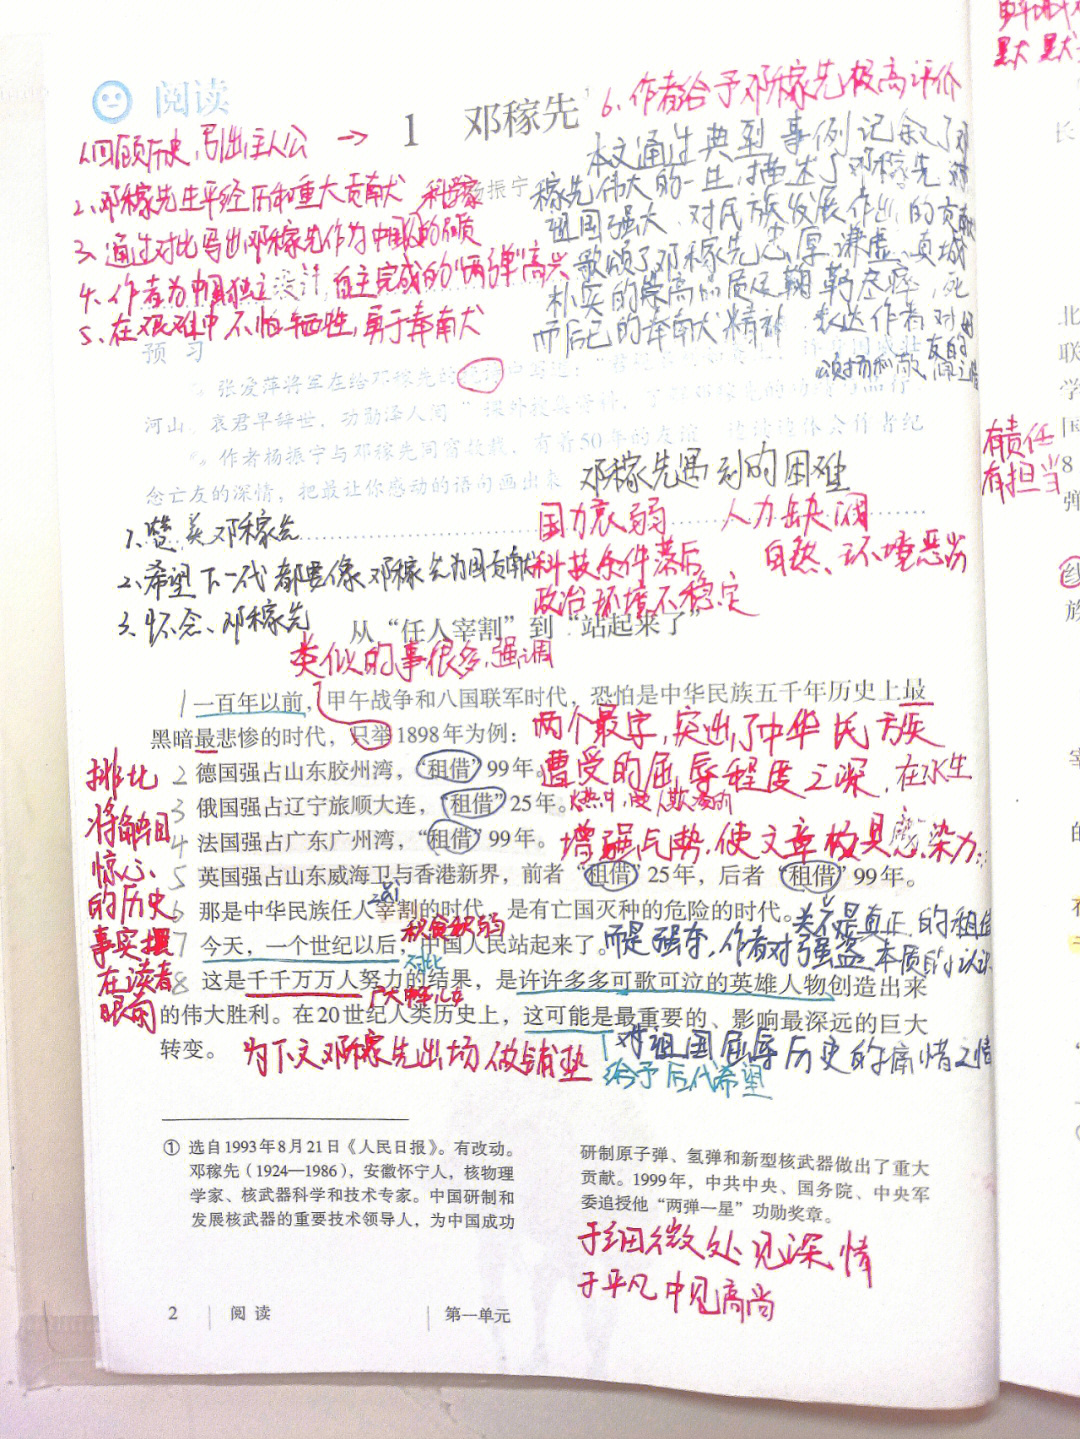 阅读
1 邓稼先
6、作者给予邓稼先极高评价
1.回顾历史,引出主人公
2、邓稼先生平经历和重大贡献 科学家
杨振宁
3、通过对比写出邓稼先作为中国的品质
4、作者为中国独立设计,自主完成的“两弹”高兴
5、在艰难中不怕牺牲,勇于奉献
本文通过典型事例记叙了邓
稼先伟大的一生,描述了邓稼先对
祖国强大、对民族发展作出的贡献
歌颂了邓稼先忠厚谦虚、真诚
朴实的崇高品质及鞠躬尽瘁,死
而后已的奉献精神 表达作者对
颂扬和敬
预习
张爱萍将军在给邓稼先的
河山。哀君早辞世,功勋泽人间
作者杨振宁与邓稼先同窗数载,有着50年的友谊
念亡友的深情,把最让你感动的语句画出来
邓稼先遇到的困难
国力衰弱 人力缺阀
科技条件落后 自然、环境恶劣
政治环境不稳定
1、赞美邓稼先
2、希望下一代都要像邓稼先为国贡献
3、怀念、邓稼先
从“任人宰割”到“站起来了”
类似的事很多,强调
1 一百年以前,甲午战争和八国联军时代,恐怕是中华民族五千年历史上最
黑暗最悲惨的时代,只举1898年为例:
两个最字,突出了中华民族
遭受的屈辱程度之深,在水生
2 德国强占山东胶州湾,“租借”99年。
3 俄国强占辽宁旅顺大连,“租借”25年。
4 法国强占广东广州湾,“租借”99年。
增强气势,使文章极具感染力
5 英国强占山东威海卫与香港新界,前者“租借”25年,后者“租借”99年。
6 那是中华民族任人宰割的时代,是有亡国灭种的危险的时代。
类不是真正的租借
7 今天,一个世纪以后,中国人民站起来了。
积贫积弱
对比
而是强夺,作者对强盗本质的认识
8 这是千千万万人努力的结果,是许许多多可歌可泣的英雄人物创造出来
的伟大胜利。在20世纪人类历史上,这可能是最重要的、影响最深远的巨大
转变。
为下文邓稼先出场做铺垫
对祖国屈辱历史的痛惜之情
给予后代希望
排比
将触目
惊心、
的历史
事实摆
在读者
眼前
① 选自1993年8月21日《人民日报》。有改动。
邓稼先(1924—1986),安徽怀宁人,核物理
学家、核武器科学和技术专家。中国研制和
发展核武器的重要技术领导人,为中国成功
研制原子弹、氢弹和新型核武器做出了重大
贡献。1999年,中共中央、国务院、中央军
委追授他“两弹一星”功勋奖章。
于细微处见深情
于平凡中见高尚
2 阅读 第一单元
有责任
有担当